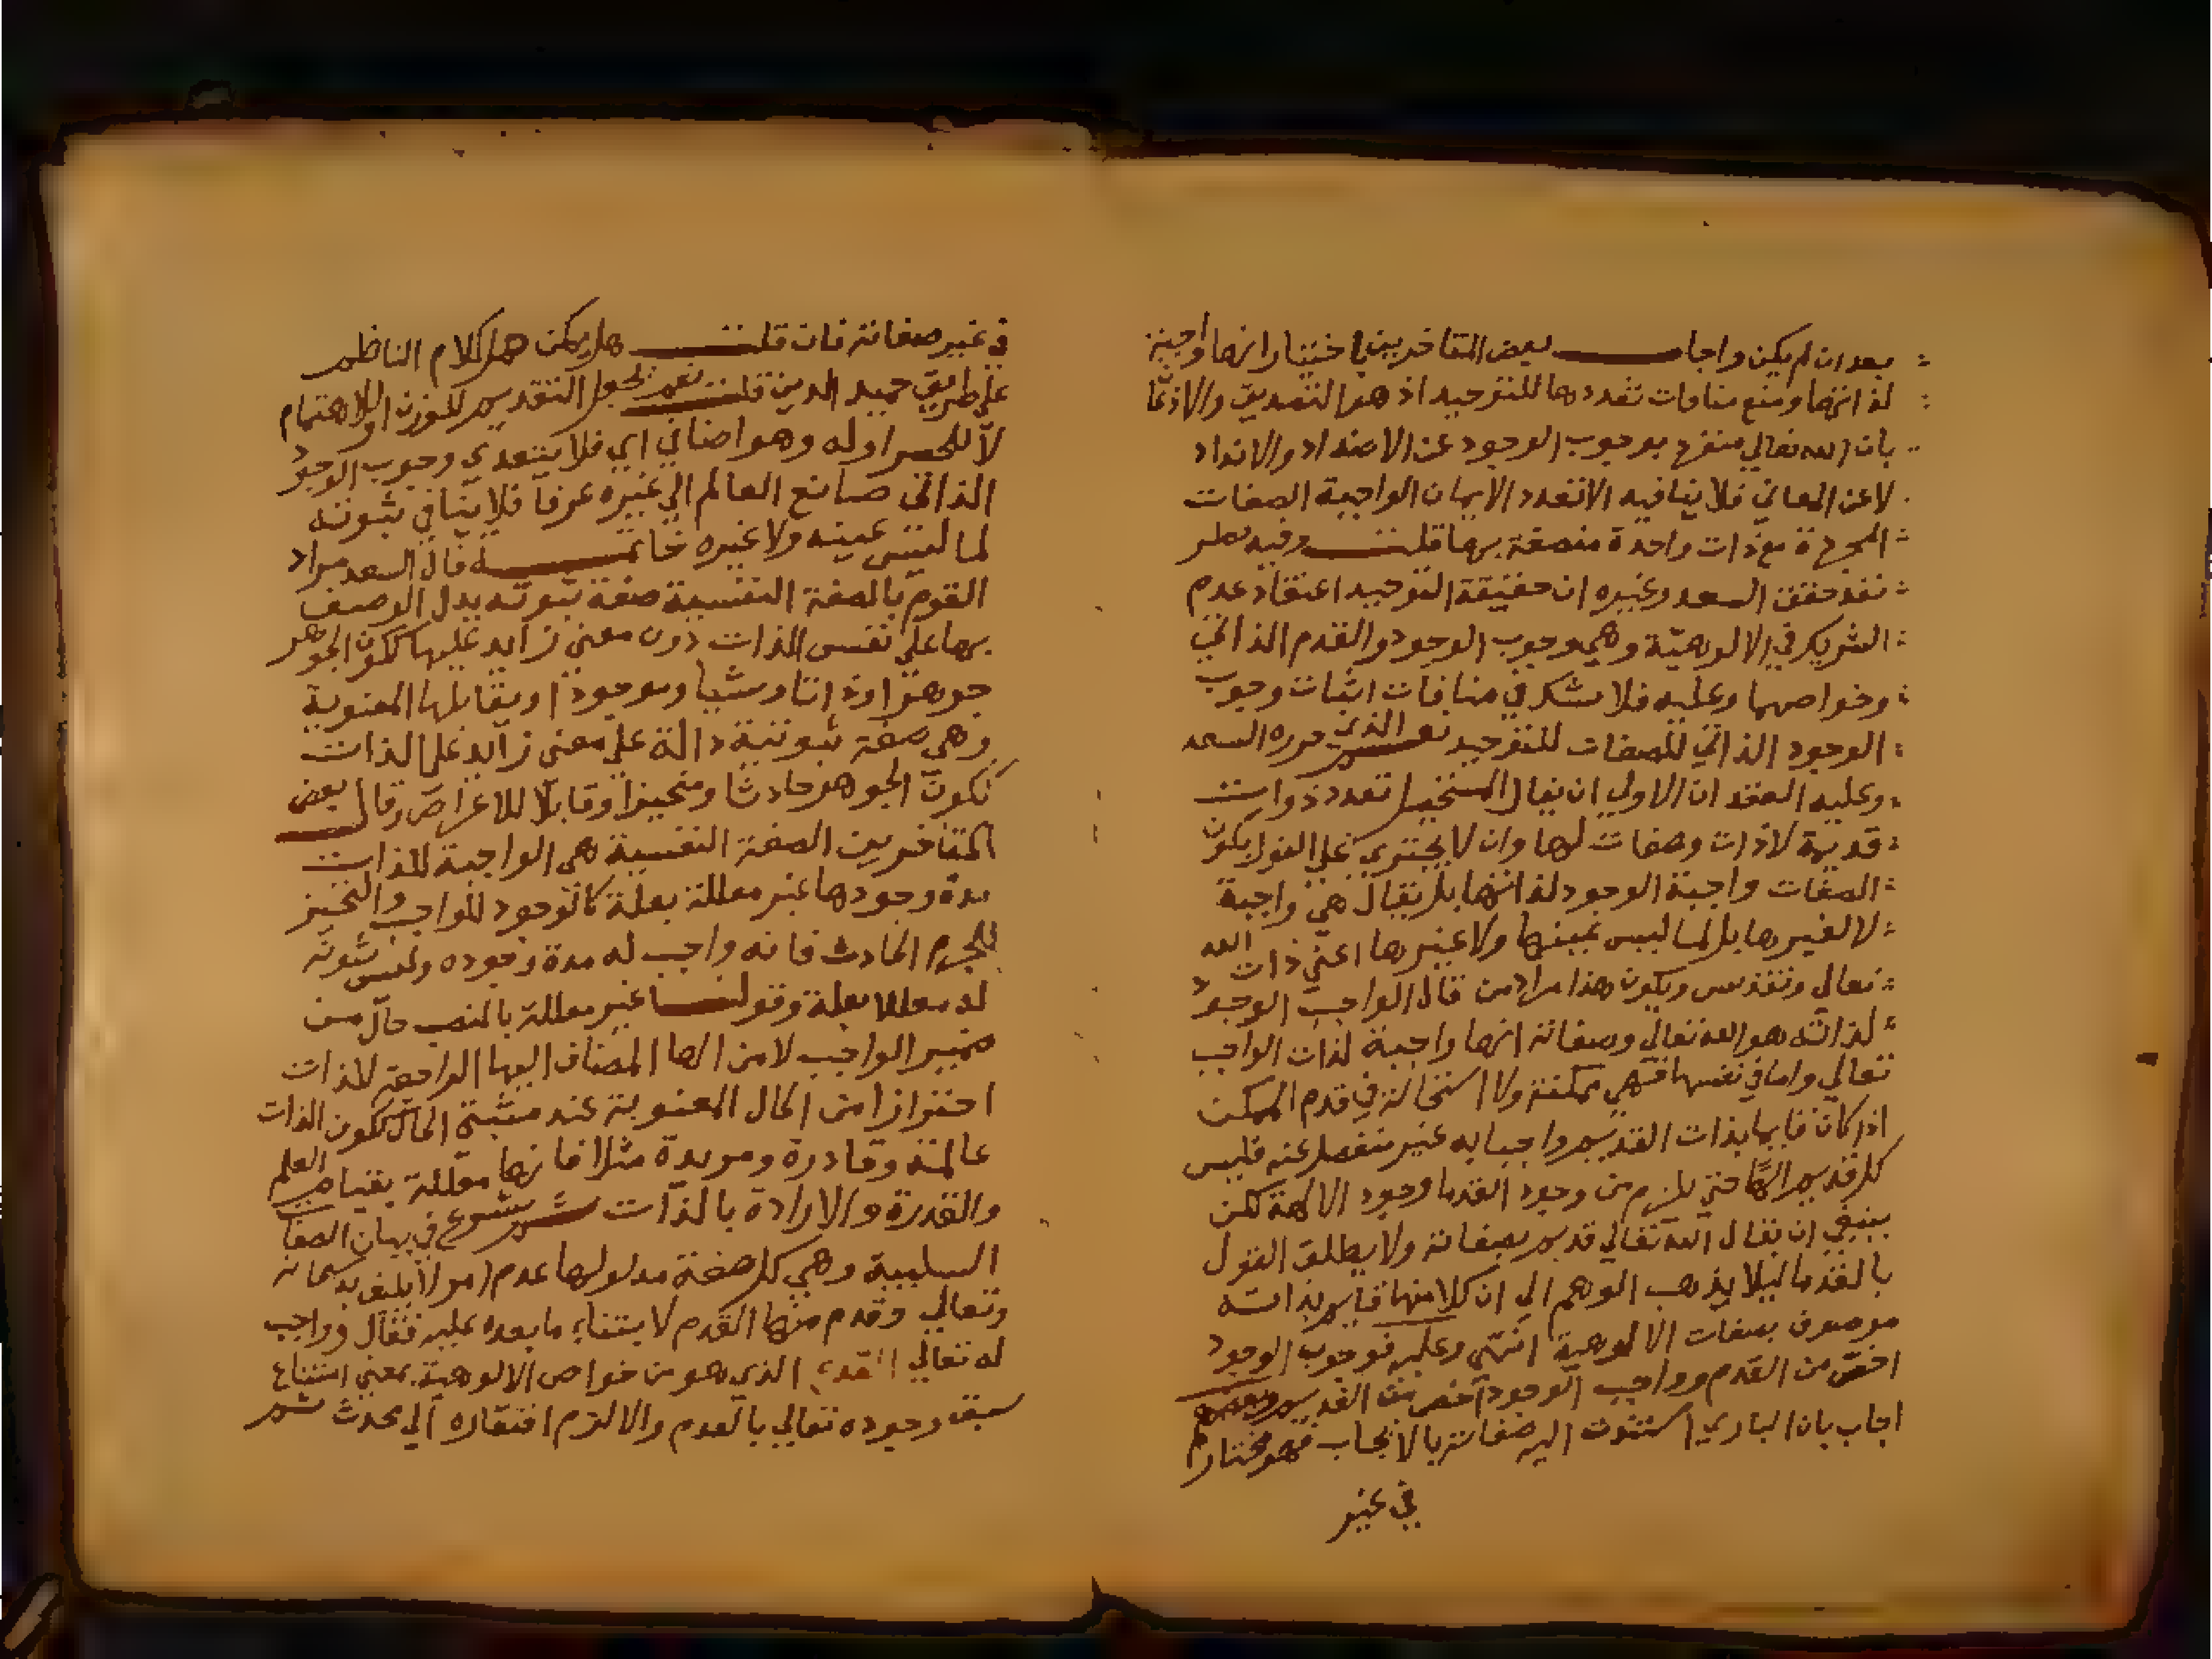 بعد ان لم يكن واجاب بعض المتاخرين باختيار انها واجبة
لذاتها ومنع منافات تعددها للتوحيد اذ هو التصديق والاذعا
بان الله تعالي منفرد بوجوب الوجود عن الاضداد والانداد
لا عن المعاني فلا ينافيه الا تعدد الايمان الواجبة الصفات
المجردة مع ذات واحدة متصفة بها قلت وفيه نظر
فقد حقق السعد وغيره ان حقيقة التوحيد اعتقاد عدم
الشريك في الالوهية وهي وجوب الوجود والقدم الذاتي
وخواصهما وعليه فلا شك في منافات اثبات وجوب
الوجود الذاتي للصفات للتوحيد نعم الذي حرره السعد
وعليه العقد ان الاولي ان يقال المستحيل تعدد ذوات
قديمة لا ذات وصفات لها وان لا يجتري علي القول بكون
الصفات واجبة الوجود لذاتها بل يقال هي واجبة
لا لغيرها بل لما ليس عينها ولا غيرها اعني ذات الله
تعالي وتقدس ويكون هذا مراد من قال الواجب الوجود
لذاته هو الله تعالي وصفاته انها واجبة لذات الواجب
تعالي واما في نفسها فهي ممكنة ولا استحالة في قدم الممكن
اذا كان قايما بذات القديم واجبا به غير منفصل عنه فليس
كل قديم الها حتي يلزم من وجود القدما وجود الالهة لكن
ينبغي ان يقال الله تعالي قديم بصفاته ولا يطلق القول
بالقدما ليلا يذهب الوهم الي ان كلا منها قايم بذاته
موصوف بصفات الالوهية انتهي وعليه فوجوب الوجود
اخص من القدم وواجب الوجود اخص من القديم
اجاب بان الباري استندت اليه صفاته بالايجاب فهو مختار
في غير
في غير صفاته فان قلت هل يمكن حمل كلام الناظم
علي طريق حميد الدين قلت نعم بجعل التقديم للوزن او للاهتمام
لا للحصر اوله وهو اضافي اي فلا يتعدي وجوب الوجود
الذاتي صانع العالم الي غيره عرفا فلا ينافي ثبوته
لما ليس عينه ولا غيره خاتمة قال السعد مراد
القوم بالصفة النفسية صفة ثبوته يدل الوصف
بها علي نفس الذات دون معني زايد عليها ككون الجوهر
جوهرا وذاتا وشيا وموجودا ويقابلها المعنوية
وهي صفة ثبوتية دالة علي معني زايد علي الذات
ككون الجوهر حادثا ومتحيزا وقابلا للاعراض وقال بعض
المتاخرين الصفة النفسية هي الواجبة للذات
مدة وجودها غير معللة بعلة كالوجود للواجب والتحيز
للجرم الحادث فانه واجب له مدة وجوده وليس ثبوته
له معللا بعلة وقولنا غير معللة بالنصب حال من
ضمير الواجب لا من الها المضاف اليها الواجبة للذات
احترازا من الحال المعنوية عند مثبتي الحال ككون الذات
عالمة وقادرة ومريدة مثلا فانها معللة بقيام العلم
والقدرة والارادة بالذات ثم شرع في بيان الصفات
السلبية وهي كل صفة مدلولها عدم امر لا يليق به سبحانه
وتعالي وقدم منها القدم لابتناء ما بعده عليه فقال وواجب
له تعالي القدم الذي هو من خواص الالوهية بمعني امتناع
سبق وجوده تعالي بالعدم والا لزم افتقاره الي محدث ثم